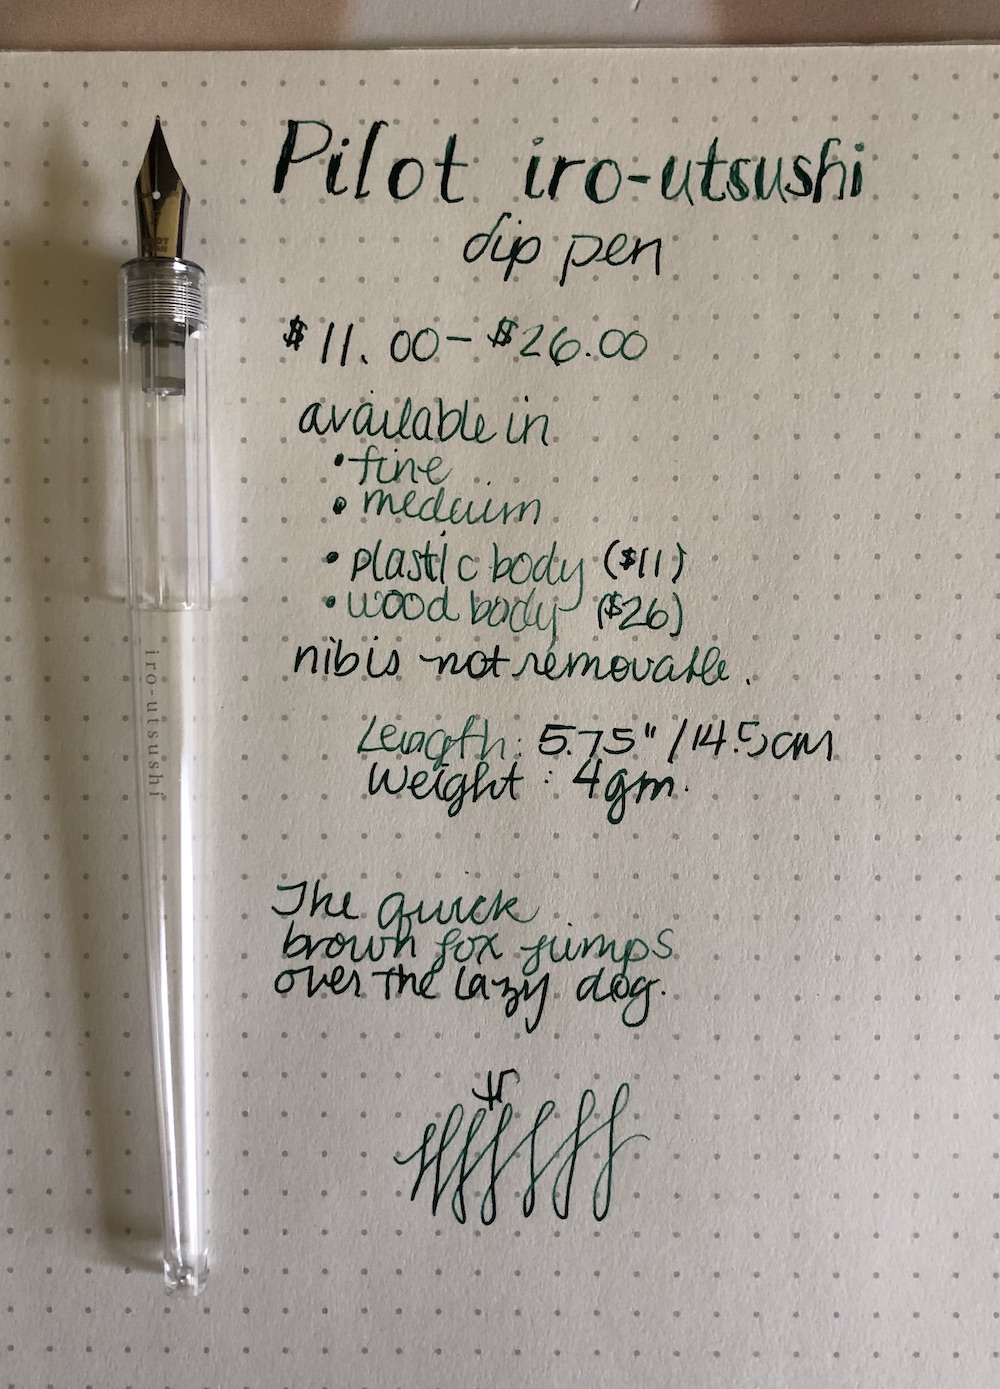 Pilot iro-utsushi
dip pen
$11.00-$26.00
available in
• fine
• medium
• plastic body ($11)
• wood body ($26)
nib is not removable.
Length: 5.75" / 14.5cm
Weight: 4gm.
The quick
brown fox jumps
over the lazy dog.
iro-utsushi